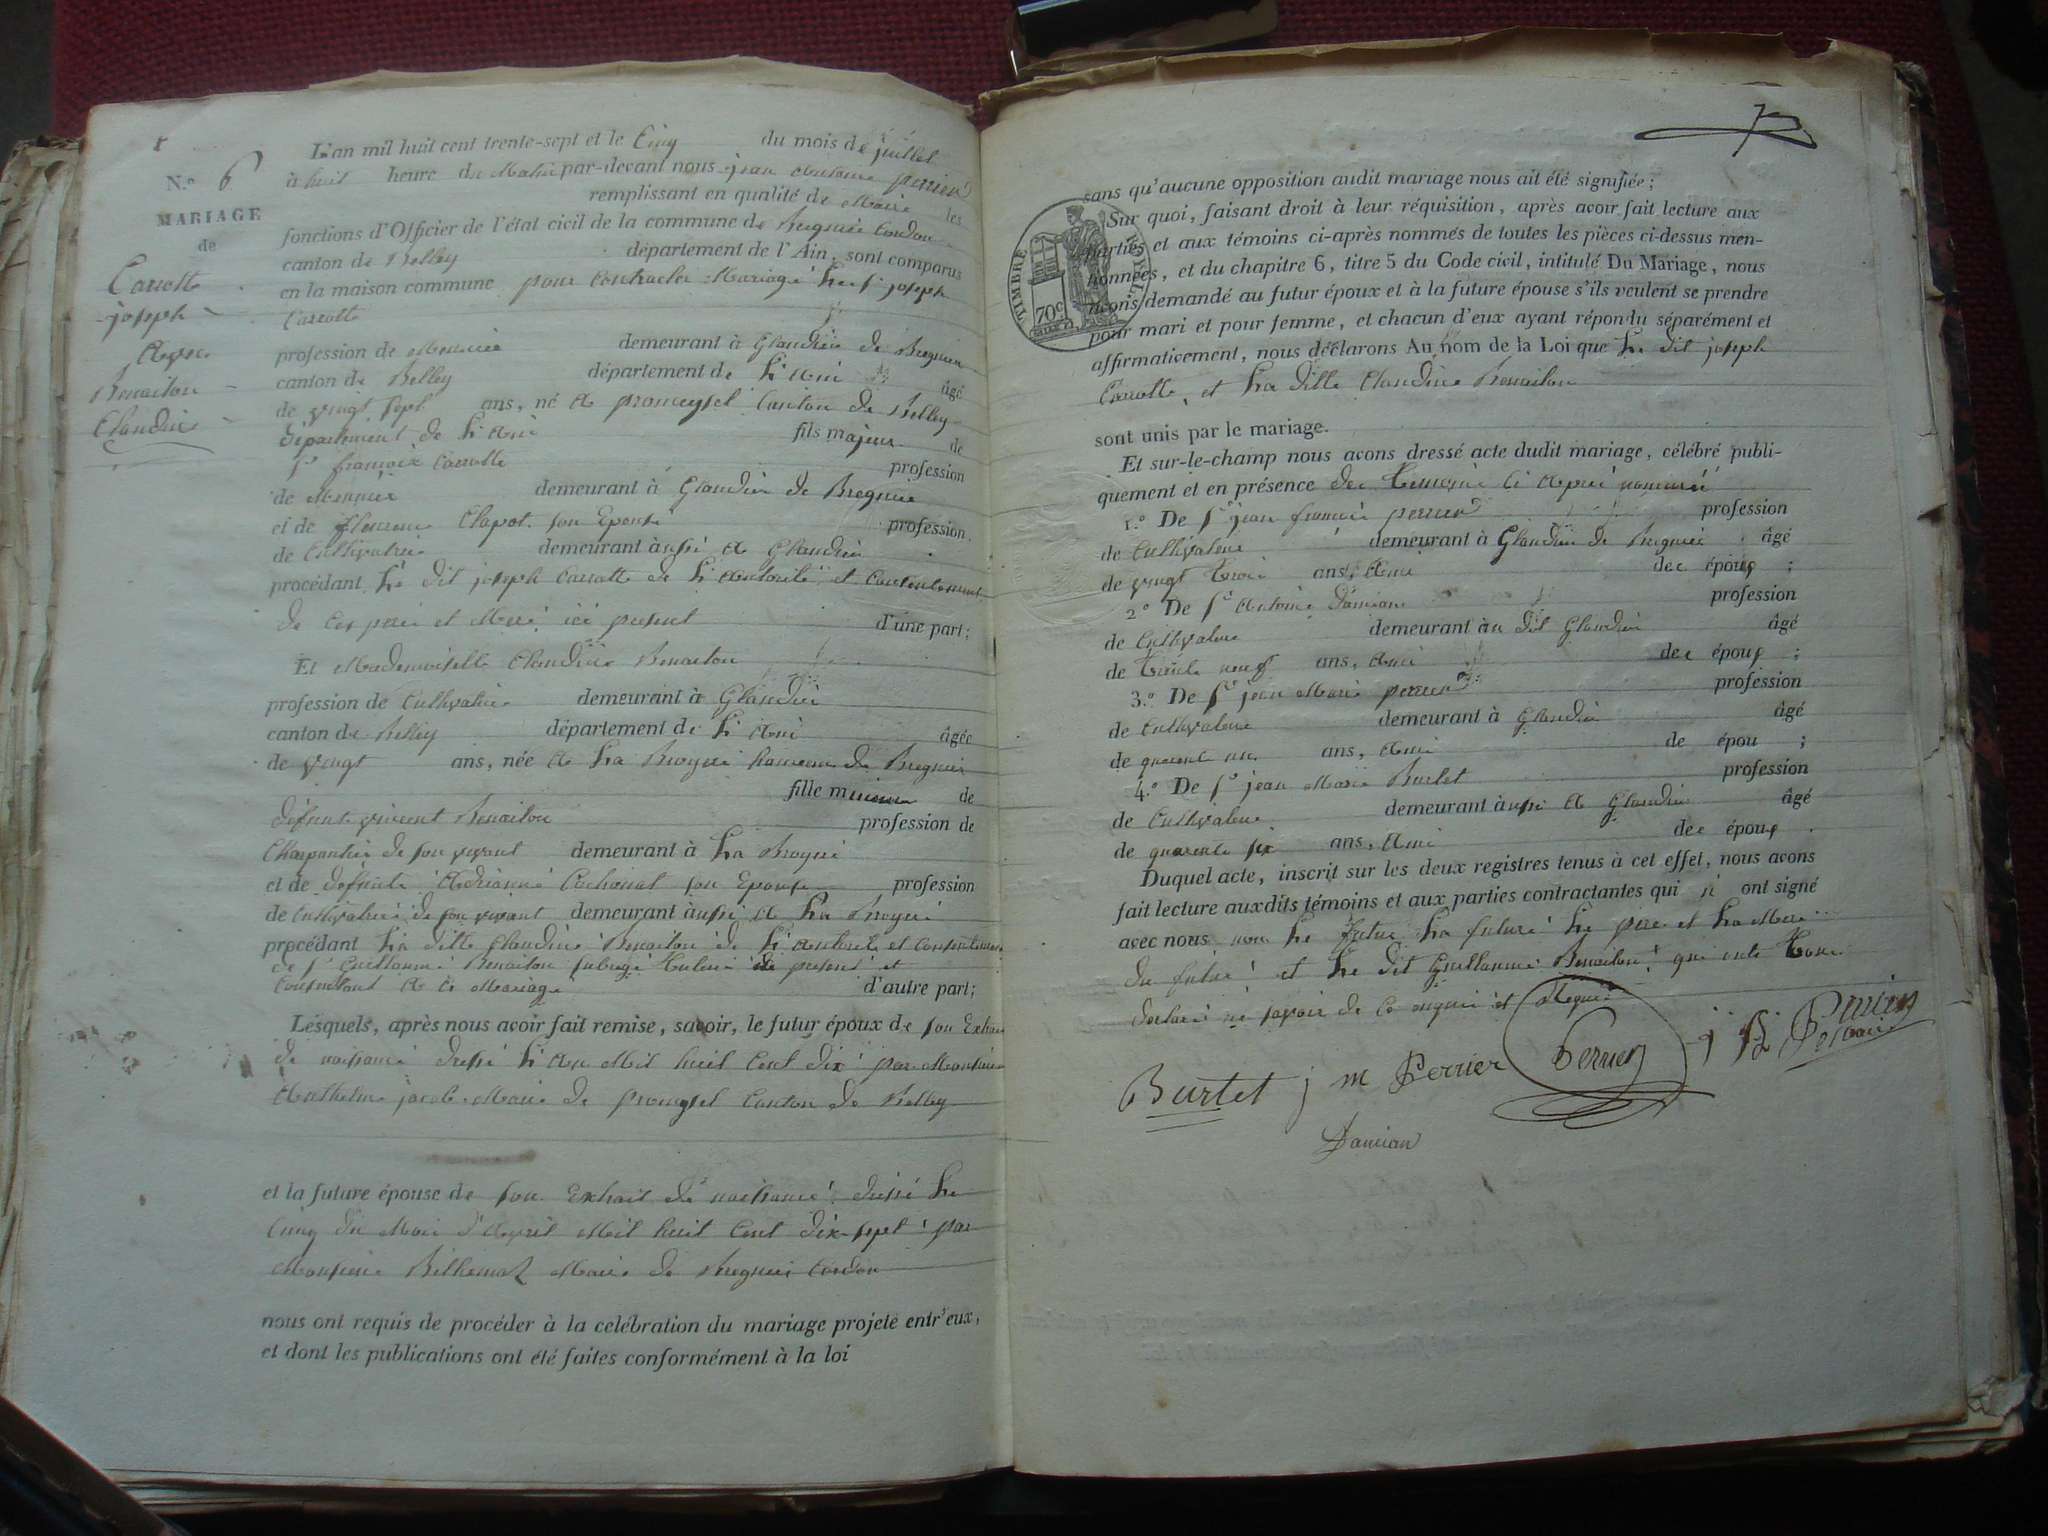 N.º 6
MARIAGE
de
Carrotte
joseph
Avec
Benaiton
Claudine
L'an mil huit cent trente-sept et le Cinq du mois de juillet
à huit heure du Matin par-devant nous jean Antoine perrier
remplissant en qualité de Maire les
fonctions d'Officier de l'état civil de la commune de Bregnier Cordon
canton de Belley département de l'Ain, sont comparus
en la maison commune pour Contracter Mariage Le Sr joseph
Carrotte
profession de Meunier demeurant à Glandieu de Bregnier
canton de Belley département de L'Ain âgé
de vingt sept ans, né A premeysel Canton de Belley
département de L'Ain fils majeur de
Sr françoix Carrotte profession
de Meunier demeurant à Glandieu de Bregnier
et de Chapot son Epouse profession
de Cultivatrice demeurant aussi A Glandieu
procédant Le dit joseph Carrotte de L'Autorité et Consentement
de Ces père et Mère ici present d'une part;
Et Mademoiselle Claudine Benaiton
profession de Cultivatrice demeurant à Glandieu
canton de Belley département de L'Ain âgée
de vingt ans, née A La Bruyere hameau de Bregnier
fille mineure de
défunt vincent Benaiton profession de
Charpentier de son vivant demeurant à La Bruyere
et de défunte Adrianne Cochonat son Epouse profession
de Cultivatrice de son vivant demeurant aussi A La Bruyere
procédant La ditte Claudine Benaiton de L'Autorité et Consentement
de Sr Guillaume Benaiton subrogé Tuteur de present et
Consentant A ce Mariage d'autre part;
Lesquels, après nous avoir fait remise, savoir, le futur époux de son Extrait
de naissance dressé L'An Mil huit Cent dix par Monsieur
Anthelme jacob Maire de premeysel Canton de Belley
et la future épouse de son Extrait de naissance dressé Le
Cinq du Mois d'Avril Mil huit Cent dix-sept par
Monsieur Billiemaz Maire de Bregnier Cordon
nous ont requis de procéder à la célébration du mariage projeté entr'eux,
et dont les publications ont été faites conformément à la loi
sans qu'aucune opposition audit mariage nous ait été signifiée;
Sur quoi, faisant droit à leur réquisition, après avoir fait lecture aux
parties et aux témoins ci-après nommés de toutes les pièces ci-dessus men-
tionnées, et du chapitre 6, titre 5 du Code civil, intitulé Du Mariage, nous
avons demandé au futur époux et à la future épouse s'ils veulent se prendre
pour mari et pour femme, et chacun d'eux ayant répondu séparément et
affirmativement, nous déclarons Au nom de la Loi que Le dit joseph
Carrotte, et La ditte Claudine Benaiton
TIMBRE ROYAL
70c
sont unis par le mariage.
Et sur-le-champ nous avons dressé acte dudit mariage, célébré publi-
quement et en présence des Temoins Ci Après nommés
1.º De Sr jean francois perrier profession
de Cultivateur demeurant à Glandieu de Bregnier âgé
de vingt trois ans, Ami des époux;
2º De Sr Antoine Damian profession
de Cultivateur demeurant au dit Glandieu âgé
de trente neuf ans, Ami des époux;
3.º De Sr jean Marie perrier profession
de Cultivateur demeurant à Glandieu âgé
de quarente un ans, Ami de épou;
4.º De Sr jean Marie Burtet profession
de Cultivateur demeurant aussi A Glandieu âgé
de quarente six ans, Ami des époux.
Duquel acte, inscrit sur les deux registres tenus à cet effet, nous avons
fait lecture auxdits témoins et aux parties contractantes qui ont signé
avec nous non Le futur La future Le père et La Mere
du futur et Le dit Guillaume Benaiton qui ont Tous
declaré ne savoir de Ce enquis et Requis
Burtet j m Perrier Perrier
Damian